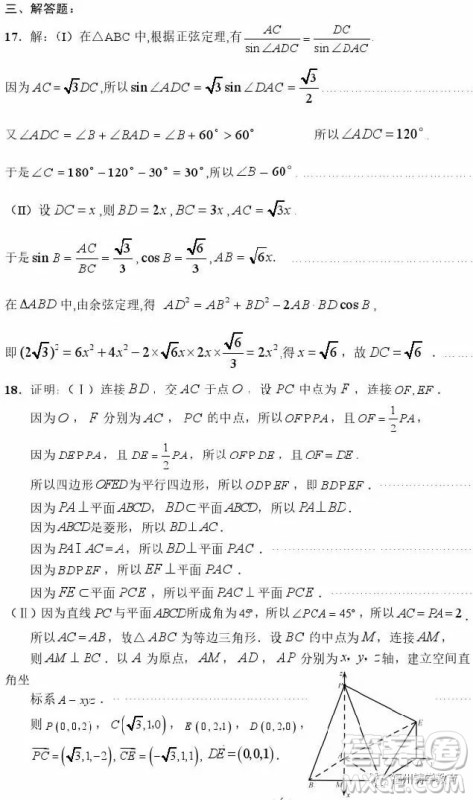 三、解答题：
17. 解：(I) 在△ABC 中,根据正弦定理,有 AC/sin∠ADC = DC/sin∠DAC.
因为 AC = √3DC,所以 sin∠ADC = √3 sin∠DAC = √3/2
又∠ADC = ∠B + ∠BAD = ∠B + 60° > 60° 所以∠ADC = 120°
于是∠C = 180° − 120° − 30° = 30°,所以∠B − 60°
(II) 设 DC = x ,则 BD = 2x , BC = 3x , AC = √3x.
于是 sin B = AC/BC = √3/3 , cos B = √6/3 , AB = √6x.
在 ΔABD 中,由余弦定理,得 AD² = AB² + BD² − 2AB·BD cos B ,
即 (2√3)² = 6x² + 4x² − 2×√6x×2x×√6/3 = 2x²,得 x = √6 , 故 DC = √6 .
18. 证明：(Ⅰ) 连接 BD , 交 AC 于点 O , 设 PC 中点为 F , 连接 OF, EF .
因为 O , F 分别为 AC , PC 的中点，所以 OF P PA，且 OF = 1/2 PA,
因为 DE P PA，且 DE = 1/2 PA，所以 OF P DE，且 OF = DE .
所以四边形 OFED 为平行四边形，所以 OD P EF，即 BD P EF .
因为 PA⊥平面 ABCD, BD⊂平面 ABCD，所以 PA⊥BD.
因为 ABCD 是菱形，所以 BD⊥AC.
因为 PA I AC = A，所以 BD⊥平面 PAC .
因为 BD P EF，所以 EF⊥平面 PAC .
因为 FE⊂平面 PCE，所以平面 PAC⊥平面 PCE .
(Ⅱ) 因为直线 PC 与平面 ABCD 所成角为 45°，所以∠PCA = 45°，所以 AC = PA = 2 .
所以 AC = AB，故△ABC 为等边三角形．设 BC 的中点为 M，连接 AM,
则 AM⊥BC．以 A 为原点，AM , AD , AP 分别为 x, y, z 轴，建立空间直
角坐
标系 A − xyz .
则 P(0,0,2) , C(√3,1,0) , E(0,2,1) , D(0,2,0) ,
PC = (√3,1,−2), CE = (−√3,1,1), DE = (0,0,1).
z
P
E
B
M